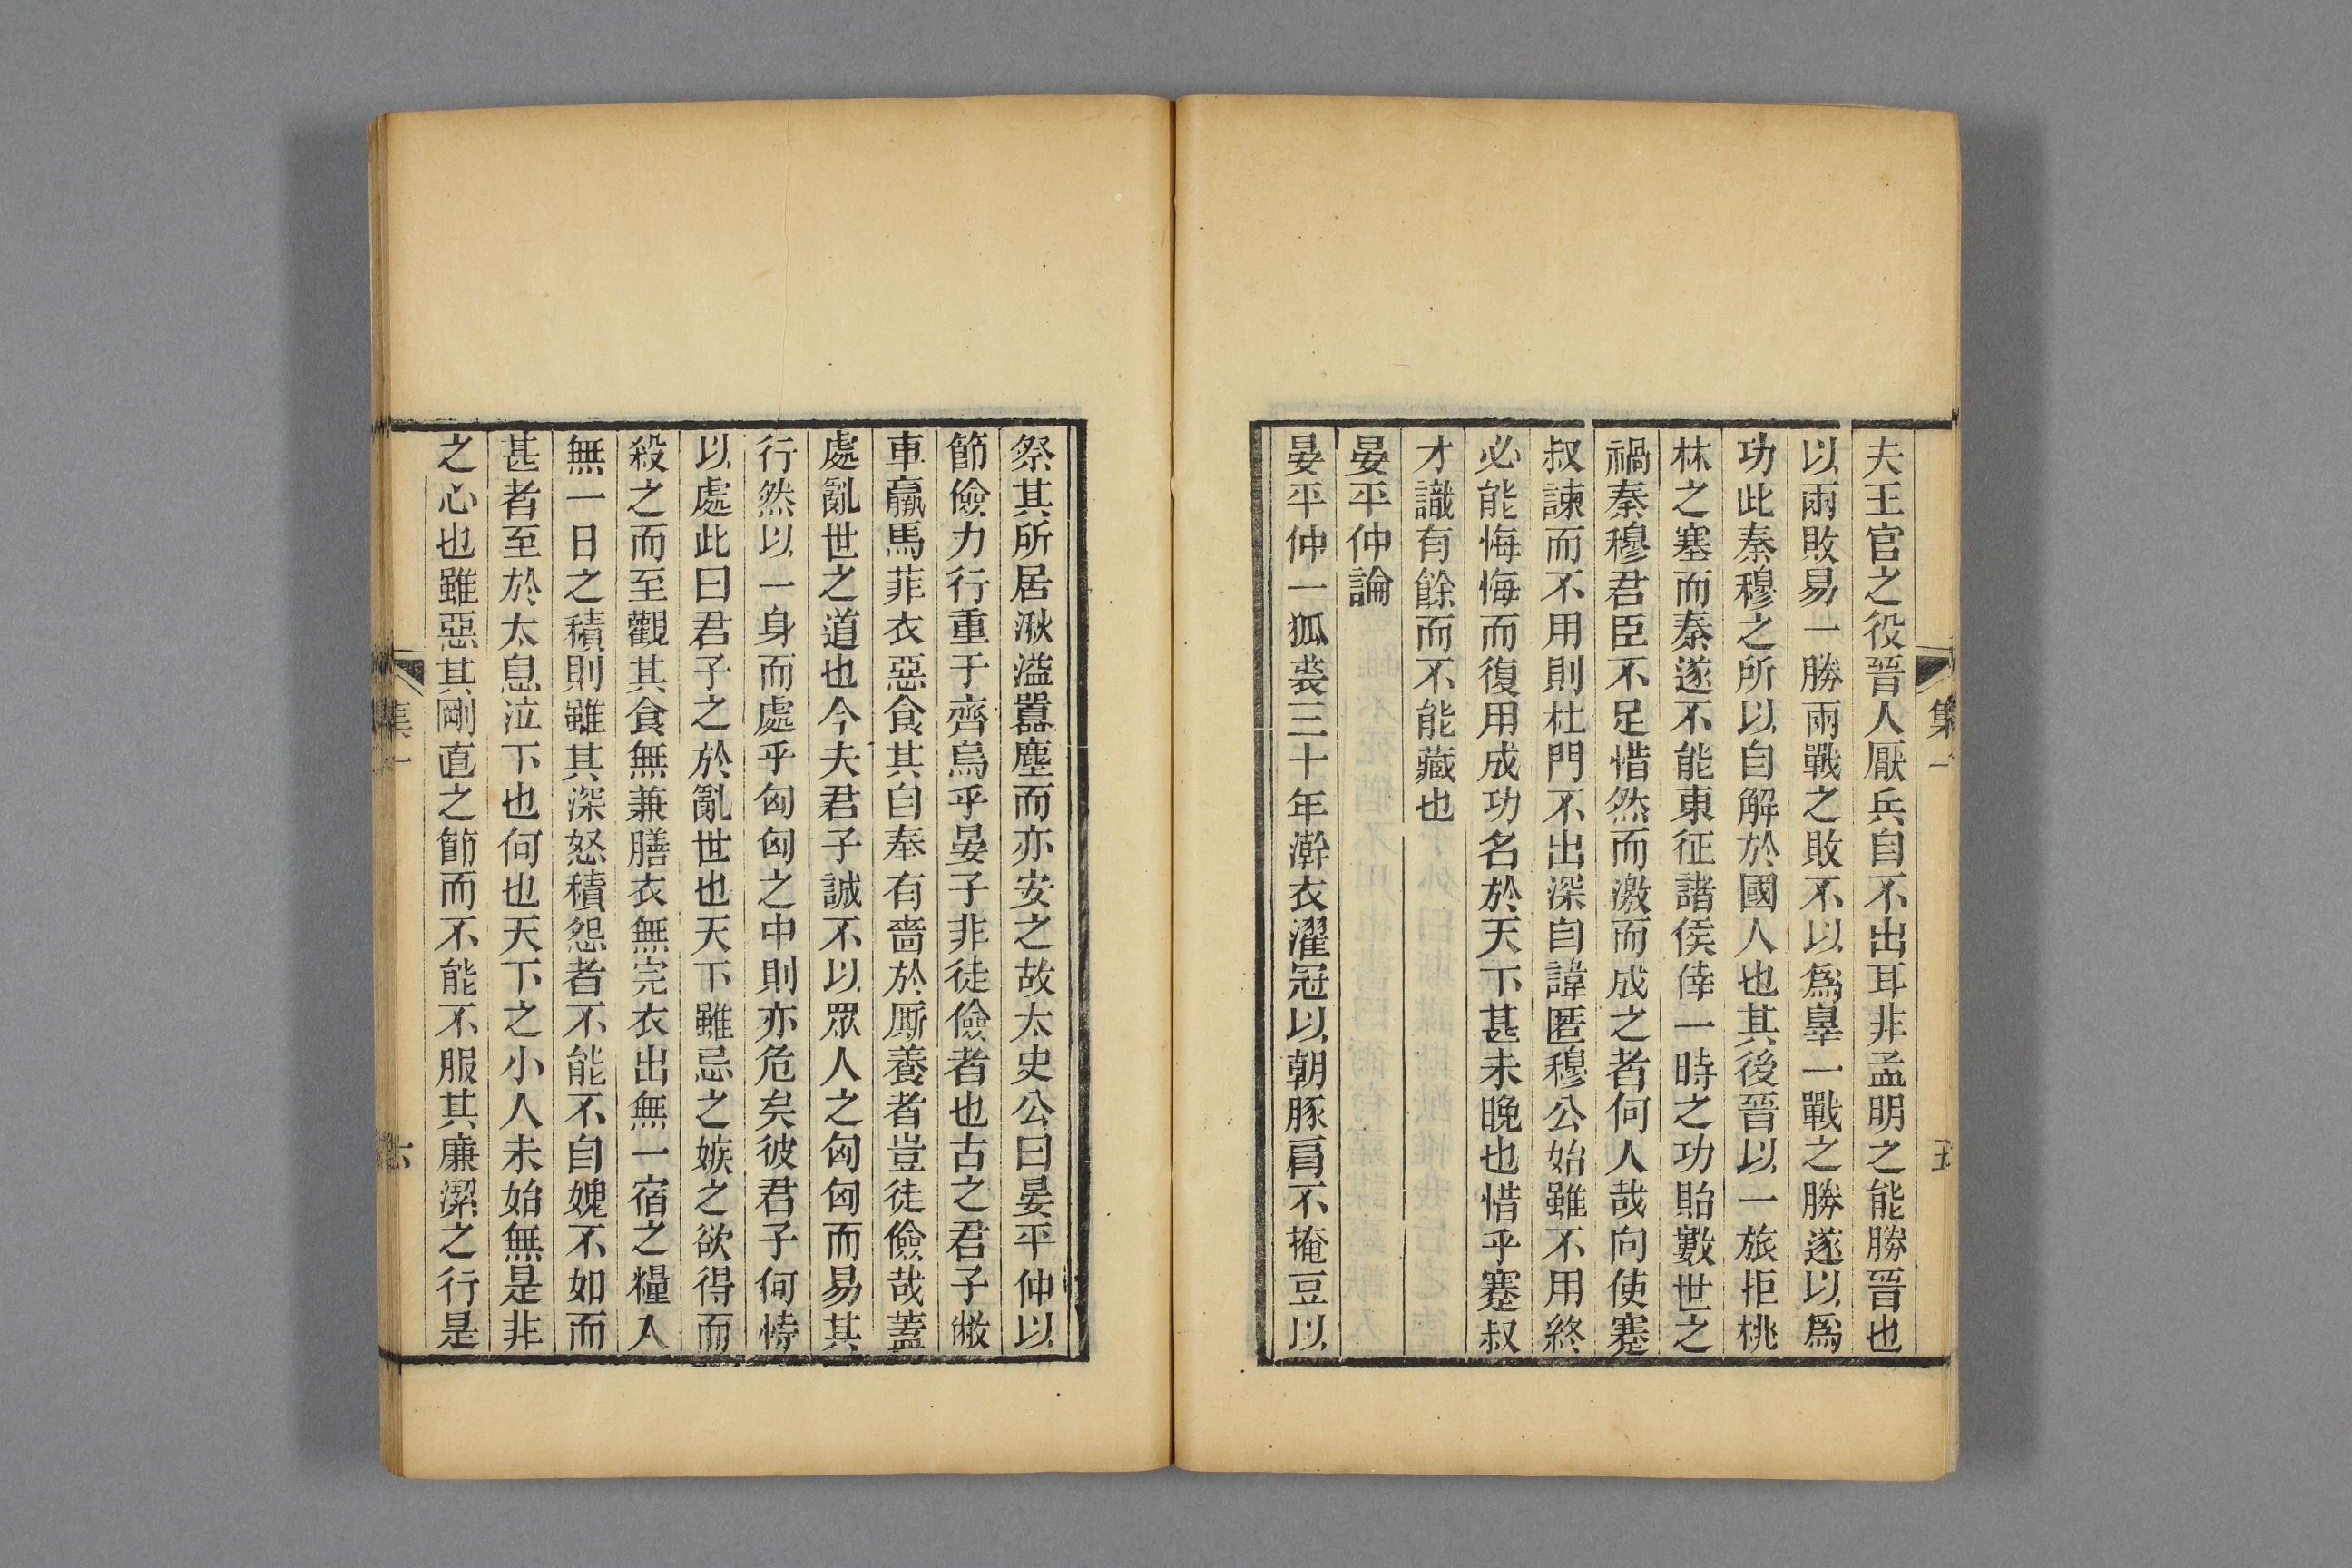 夫王官之役晉人厭兵自不出耳非孟明之能勝晉也
以兩敗易一勝兩戰之敗不以爲辠一戰之勝遂以爲
功此秦穆之所以自解於國人也其後晉以一旅拒桃
林之塞而秦遂不能東征諸侯倖一時之功貽數世之
禍秦穆君臣不足惜然而激而成之者何人哉向使蹇
叔諫而不用則杜門不出深自諱匿穆公始雖不用終
必能悔悔而復用成功名於天下甚未晚也惜乎蹇叔
才識有餘而不能藏也
晏平仲論
晏平仲一狐裘三十年澣衣濯冠以朝豚肩不掩豆以
集一
五
祭其所居湫溢囂塵而亦安之故太史公曰晏平仲以
節儉力行重于齊烏乎晏子非徒儉者也古之君子敝
車羸馬菲衣惡食其自奉有嗇於厮養者豈徒儉哉蓋
處亂世之道也今夫君子誠不以眾人之匈匈而易其
行然以一身而處乎匈匈之中則亦危矣彼君子何恃
以處此曰君子之於亂世也天下雖忌之嫉之欲得而
殺之而至觀其食無兼膳衣無完衣出無一宿之糧入
無一日之積則雖其深怒積怨者不能不自媿不如而
甚者至於太息泣下也何也天下之小人未始無是非
之心也雖惡其剛直之節而不能不服其廉潔之行是
集一
六